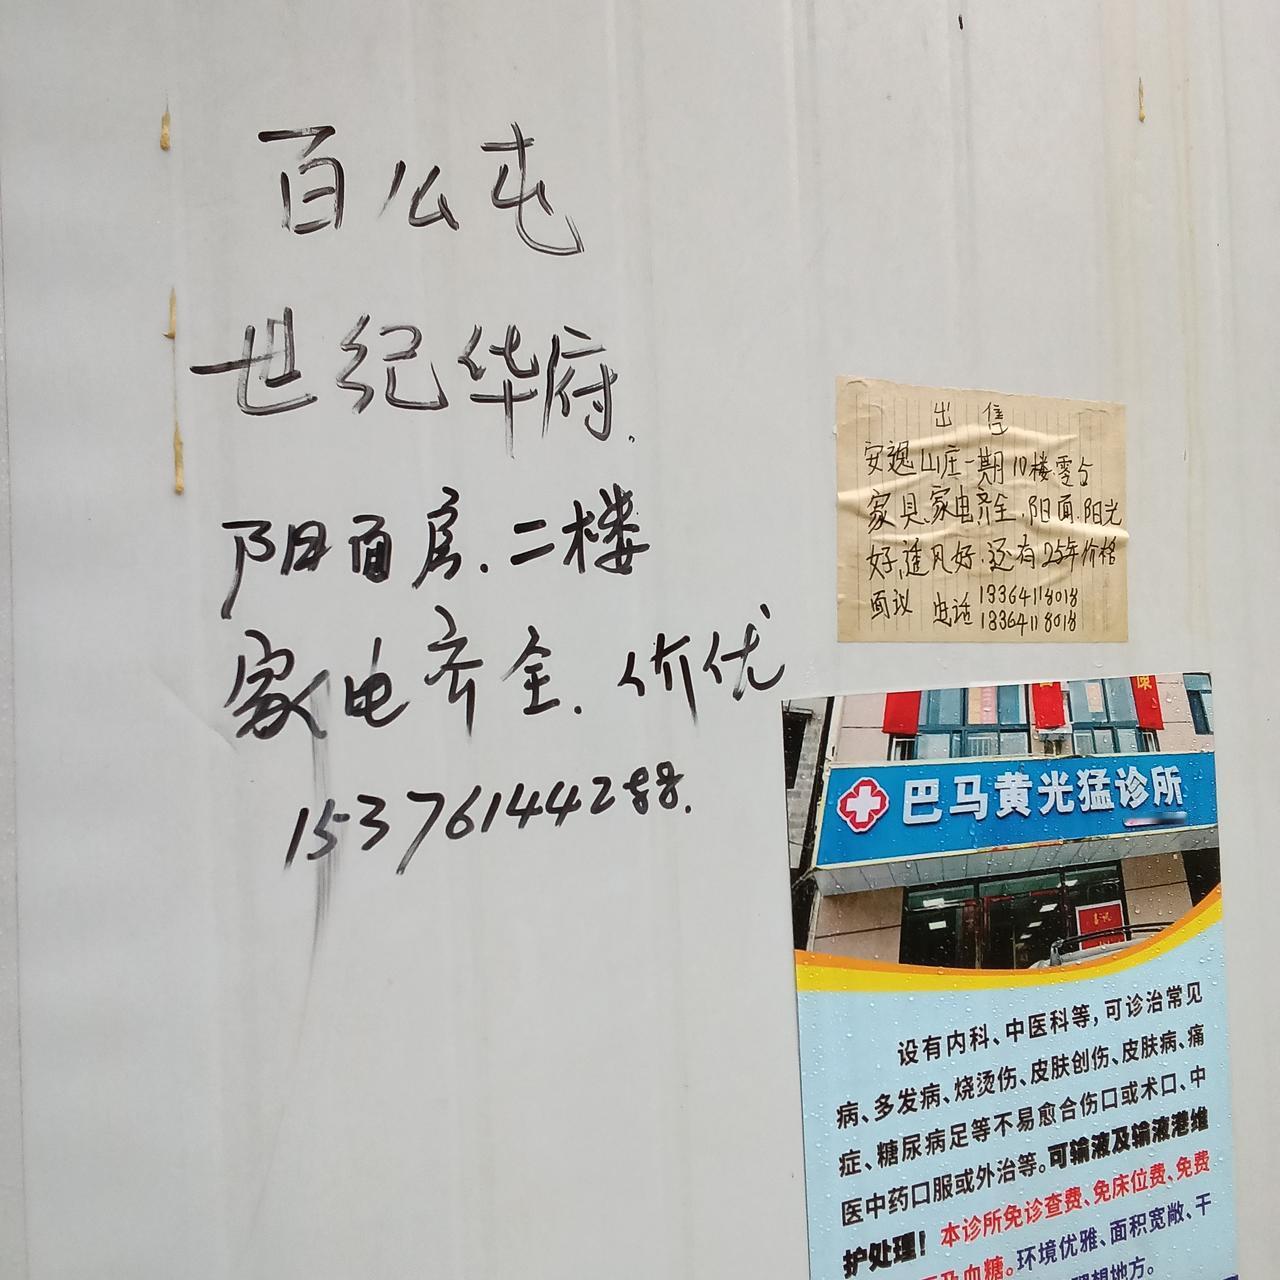 百么屯
世纪华府.
阳面房.二楼
家电齐全.价优
153761442
出售
安逸山庄一期10楼.零占
家具、家电齐全.阳面.阳光
好,通风好.还有25年价格
面议 电话 19364118018
13364118018
巴马黄光猛诊所
设有内科、中医科等,可诊治常见
病、多发病、烧烫伤、皮肤创伤、皮肤病、痛
症、糖尿病足等不易愈合伤口或术口、中
医中药口服或外治等。可输液及输液港维
护处理!本诊所免诊查费、免床位费、免费
血糖。环境优雅、面积宽敞、干
想地方。